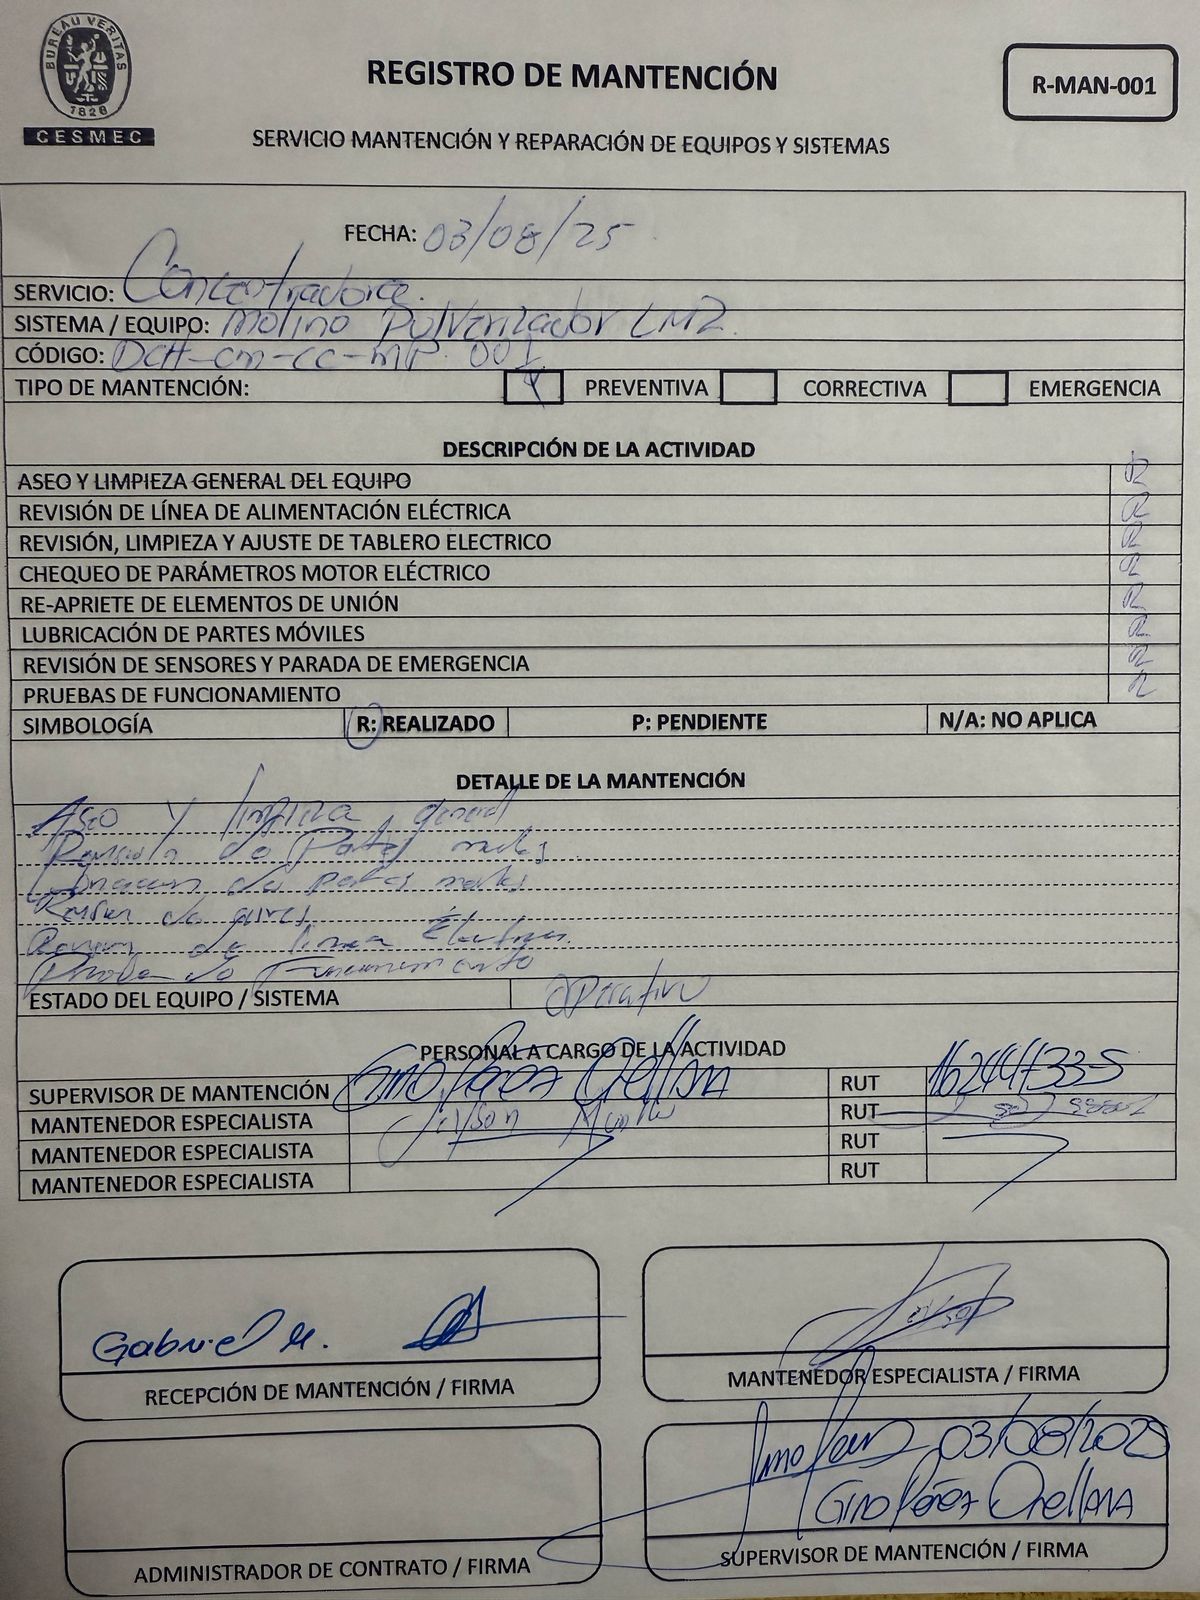 BUREAU VERITAS
1828
CESMEC
REGISTRO DE MANTENCIÓN
R-MAN-001
SERVICIO MANTENCIÓN Y REPARACIÓN DE EQUIPOS Y SISTEMAS
FECHA: 03/08/25
SERVICIO: Concentradora.
SISTEMA / EQUIPO: Molino Pulverizador LM2
CÓDIGO: DCH-cm-cc-MP 001
TIPO DE MANTENCIÓN: PREVENTIVA CORRECTIVA EMERGENCIA
DESCRIPCIÓN DE LA ACTIVIDAD
ASEO Y LIMPIEZA GENERAL DEL EQUIPO R
REVISIÓN DE LÍNEA DE ALIMENTACIÓN ELÉCTRICA R
REVISIÓN, LIMPIEZA Y AJUSTE DE TABLERO ELECTRICO R
CHEQUEO DE PARÁMETROS MOTOR ELÉCTRICO R
RE-APRIETE DE ELEMENTOS DE UNIÓN R
LUBRICACIÓN DE PARTES MÓVILES R
REVISIÓN DE SENSORES Y PARADA DE EMERGENCIA R
PRUEBAS DE FUNCIONAMIENTO R
SIMBOLOGÍA R: REALIZADO P: PENDIENTE N/A: NO APLICA
DETALLE DE LA MANTENCIÓN
Aseo y limpieza general
de Partes
de partes
de
de linea Electrica
Prueba de Funcionamiento
ESTADO DEL EQUIPO / SISTEMA Operativo
PERSONAL A CARGO DE LA ACTIVIDAD
SUPERVISOR DE MANTENCIÓN Gino Pérez Orellana RUT 16244733-5
MANTENEDOR ESPECIALISTA RUT
MANTENEDOR ESPECIALISTA RUT
MANTENEDOR ESPECIALISTA RUT
Gabriel M.
RECEPCIÓN DE MANTENCIÓN / FIRMA
MANTENEDOR ESPECIALISTA / FIRMA
03/08/2025
Gino Pérez Orellana
ADMINISTRADOR DE CONTRATO / FIRMA
SUPERVISOR DE MANTENCIÓN / FIRMA